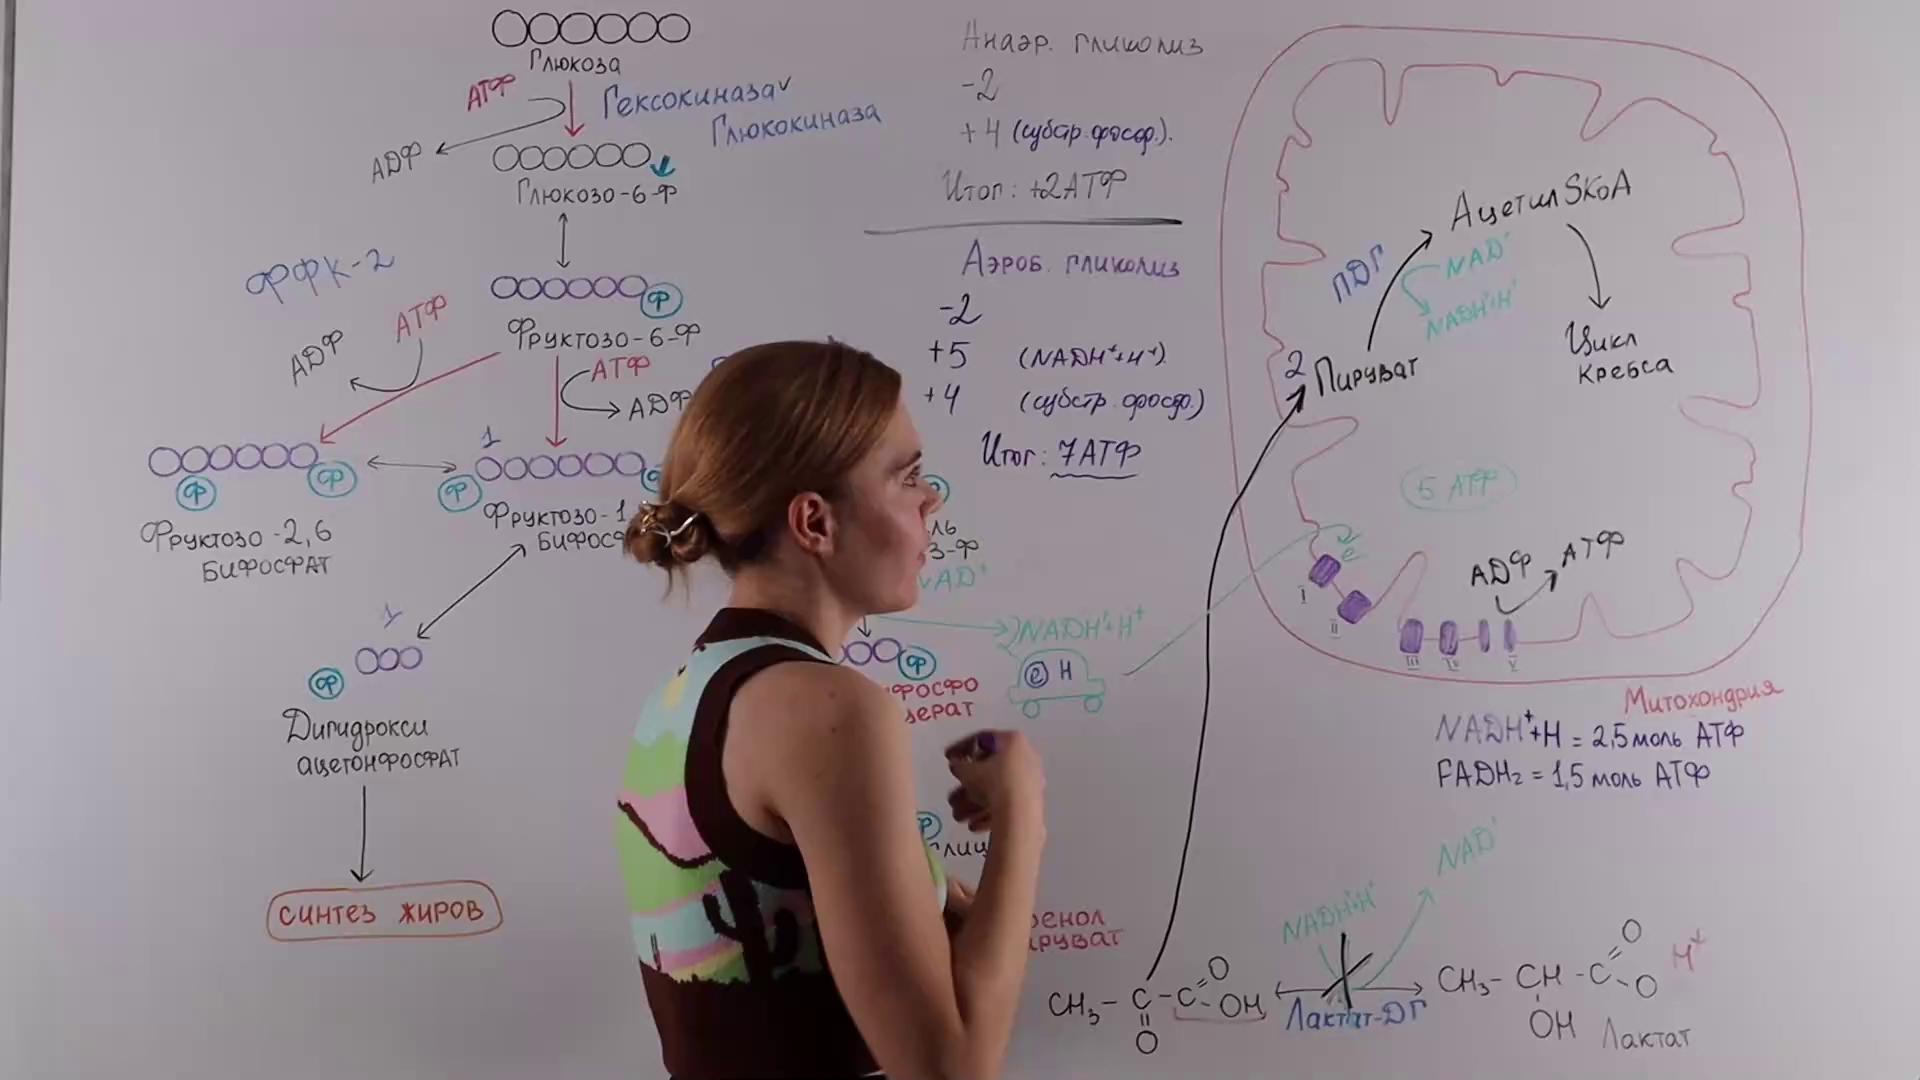 Глюкоза
АТФ
Гексокиназа
Глюкокиназа
АДФ
Глюкозо-6-Ф
ФФК-2
Ф
Фруктозо-6-Ф
АДФ
АТФ
АТФ
АДФ
1
Ф
Ф
Ф
Фруктозо-2,6
БИФОСФАТ
Фруктозо-1
БИФОСФ
1
Ф
Дигидрокси
ацетонфосфат
синтез жиров
Анаэр. гликолиз
-2
+4 (субстр. фосф.).
Итог: +2АТФ
Аэроб. гликолиз
-2
+5 (NADH⁺+H⁺)
+4 (субстр. фосф.)
Итог: 7АТФ
Ф
ль
3-Ф
NAD⁺
NADH⁺+H⁺
Ф
e H
ифосфо
церат
Ф
глиц
енол
ируват
АцетилSKoA
ПДГ
NAD⁺
NADH⁺+H⁺
2 Пируват
Цикл
Кребса
5 АТФ
e
АДФ
АТФ
I
II
III
IV
V
Митохондрия
NADH⁺+H = 2,5 моль АТФ
FADH₂ = 1,5 моль АТФ
NADH⁺+H⁺
NAD⁺
CH₃-C-C=O-OH
O
Лактат-ДГ
CH₃-CH-C=O-O
H⁺
OH
Лактат